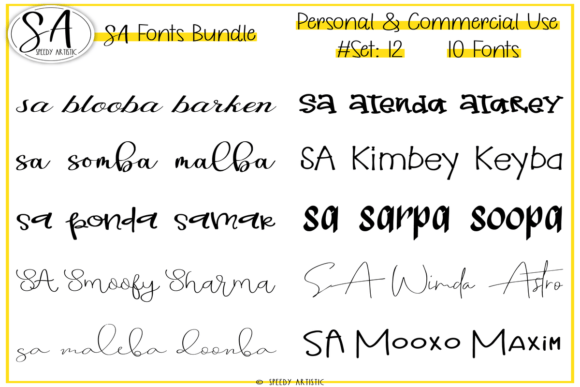 SA
SPEEDY ARTISTIC
SA Fonts Bundle
Personal & Commercial Use
#Set: 12
10 Fonts
sa blooba barken
sa somba malba
sa ponda samar
SA Smoofy Sharma
sa maleba doonba
sa atenda atarey
SA Kimbey Keyba
sa sarpa soopa
SA Winda Astro
SA Mooxo Maxim
© SPEEDY ARTISTIC